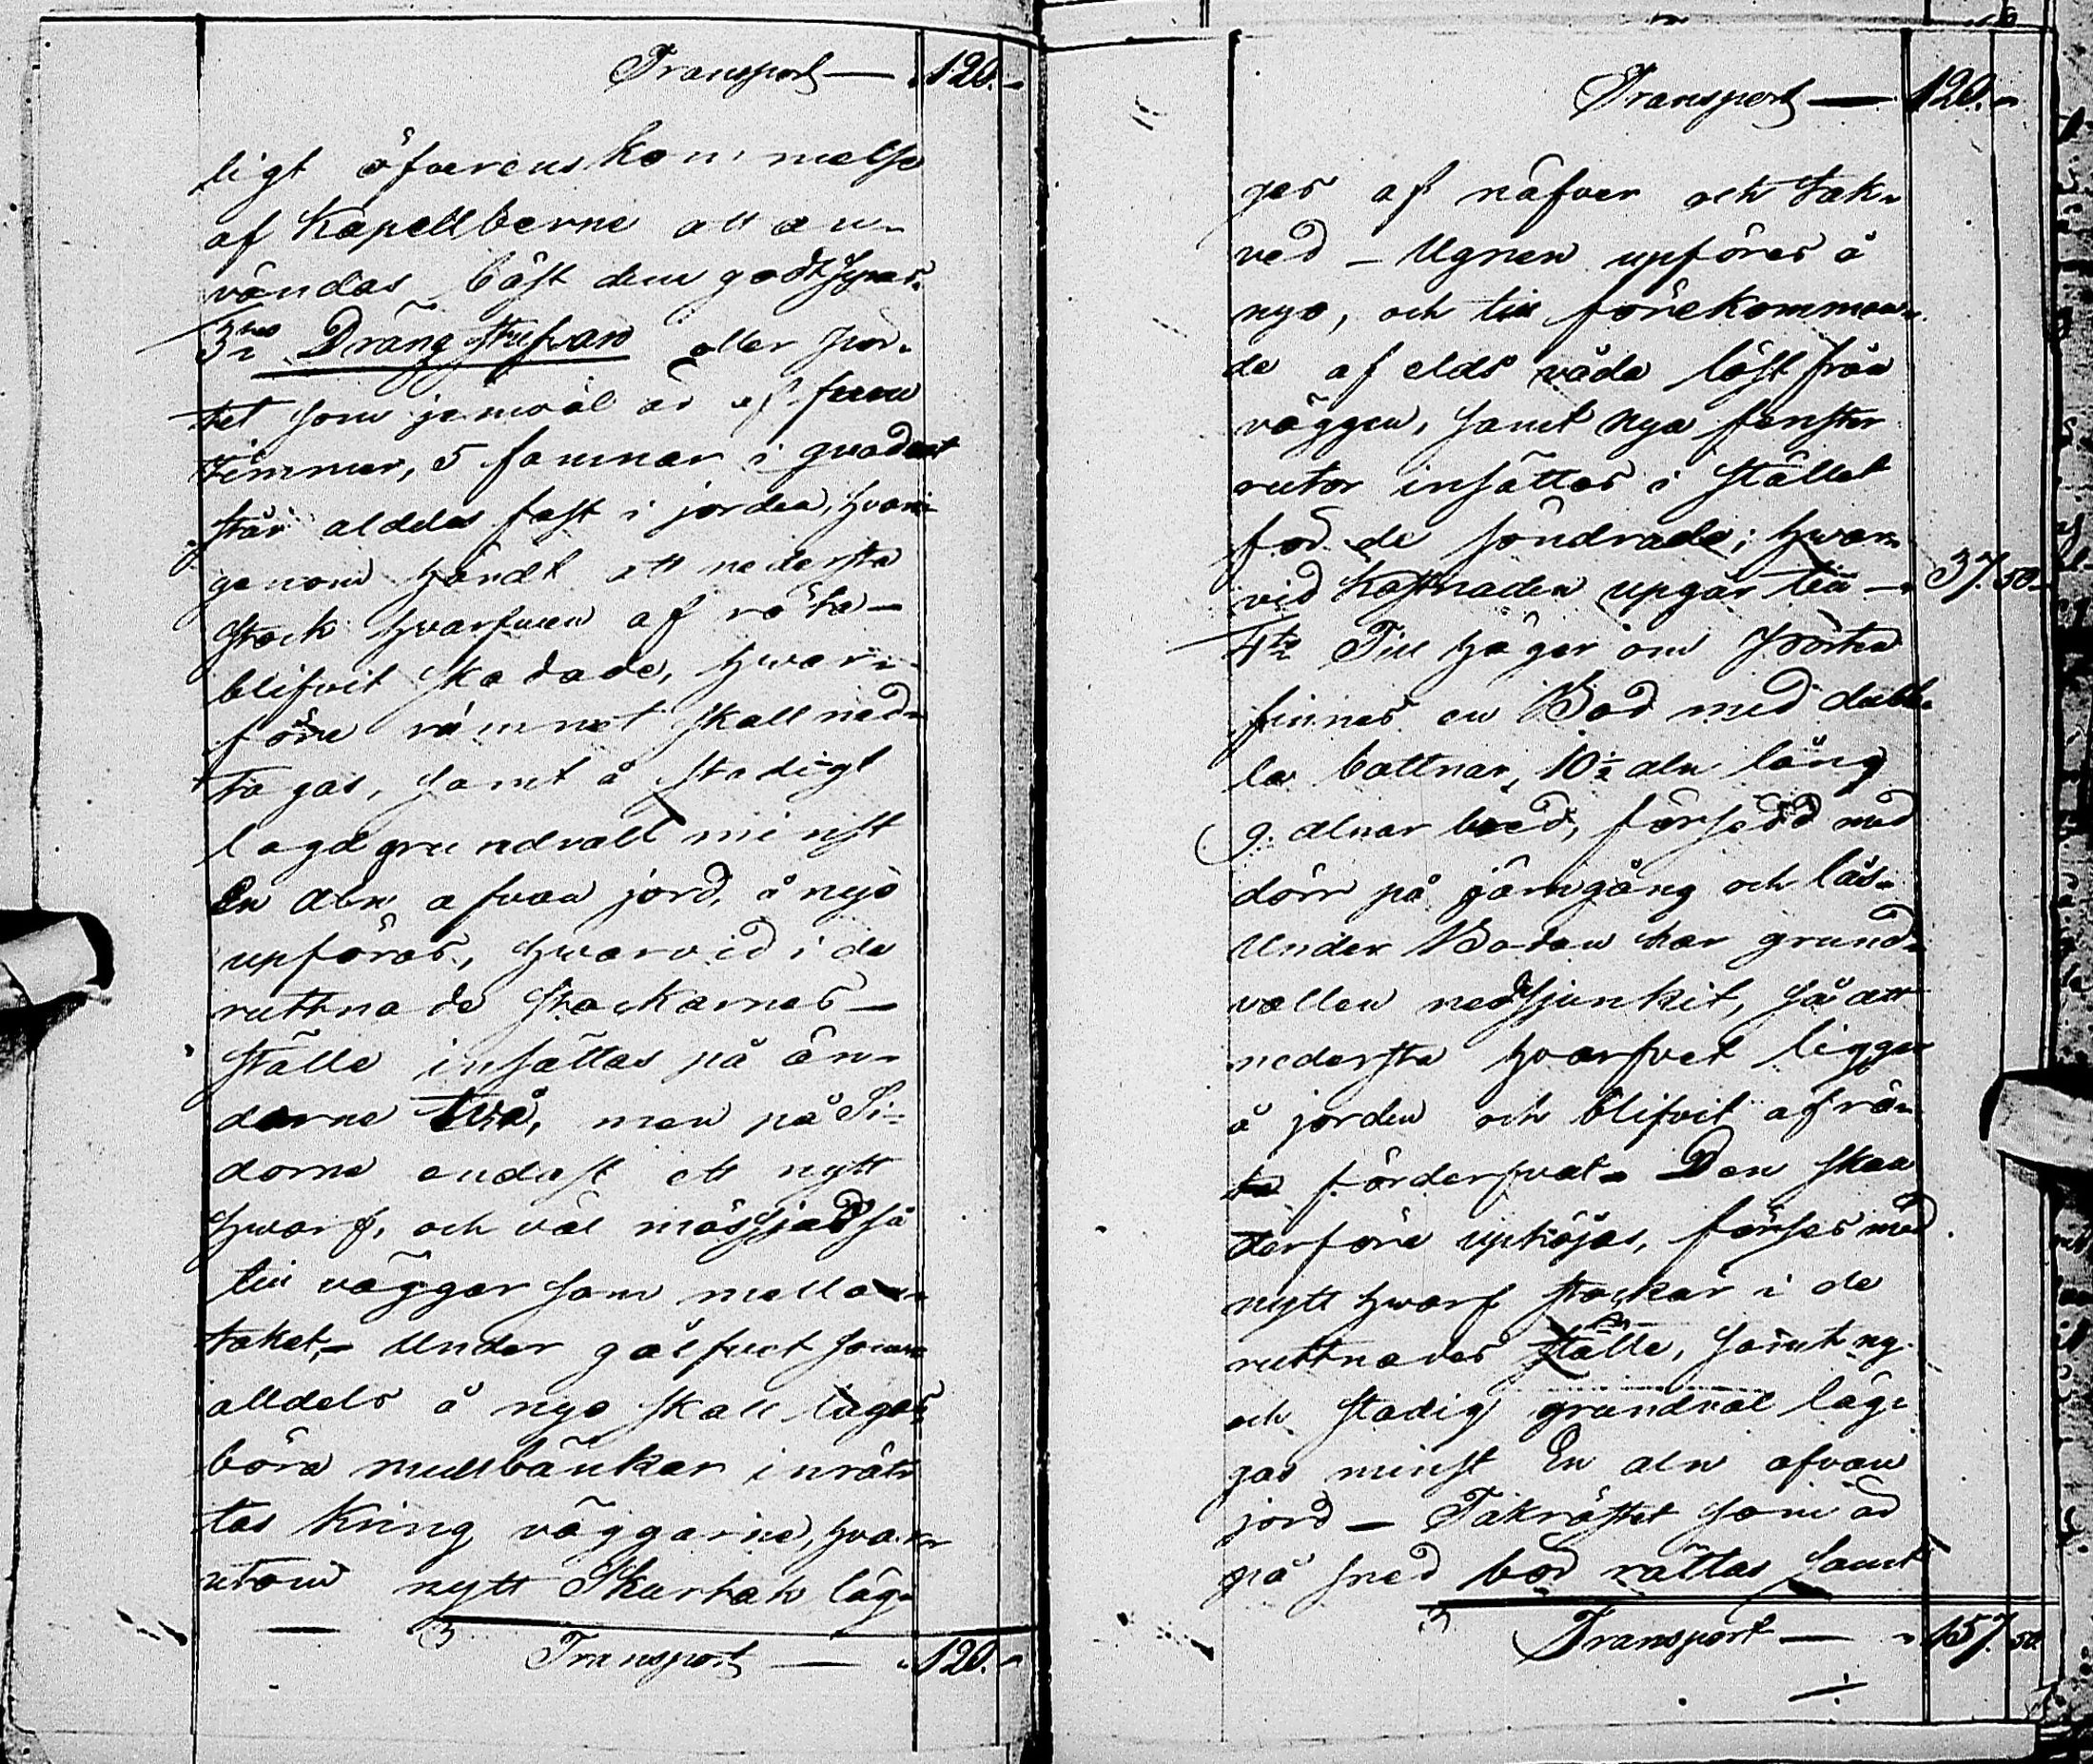 Transport — 120. -
ligt öfverenskommelse
af Kapellberne att an-
vändas bäst dem godt synes.
3tio Drängstufvan eller Pör-
tet som jemväl är af furu
timmer, 5 famnar i quadrat
står aldeles fast i jorden, hvari-
genom händt att nedersta
stock hvarfven af röta -
blifvit skadade, hvar-
före rummet skall ned-
tagas, samt å stadigt
lagd grundvall minst
En aln ofvan jord, å nyo
upföras, hvarvid i de
ruttnade stockarnes -
ställe insättas på än-
darne två, men på Si-
dorna endast ett nytt
hvarf, och väl måssjad så
till väggar som mellan
taket, - Under gålfvet som
alldels å nyo skall läggas
böra mullbänkar inrät-
tas kring väggarne, hvar-
utom nytt Skurtak läg-
Transport — 120. -
Transport — 120. -
ges af näfver och tak-
ved - Ugnen upföres å
nyo, och till förekomman-
de af elds våda löst från
väggen, samt nya fenster
rutor insättes i stället
för de söndrade; hvar-
vid kostnaden upgår till - 37. 50.
4to Till höger om Pörtet
finnes en Bod med dubb-
la bottnar, 10½ aln lång
9. alnar bred, försedd med
dörr på järngång och lås.
Under Boden har grund-
vallen nedsjunkit, så att
nedersta hvarfvet ligger
å jorden och blifvit af rö-
ta förderfvat. Den skall
derföre uphöjas, förses med
nytt hvarf stockar i de
ruttnades ställe, samt ny
och stadig grundval läg-
gas minst En aln ofvan
jord - Takröstet som är
på sned bör rättas samt
Transport — 157. 50.